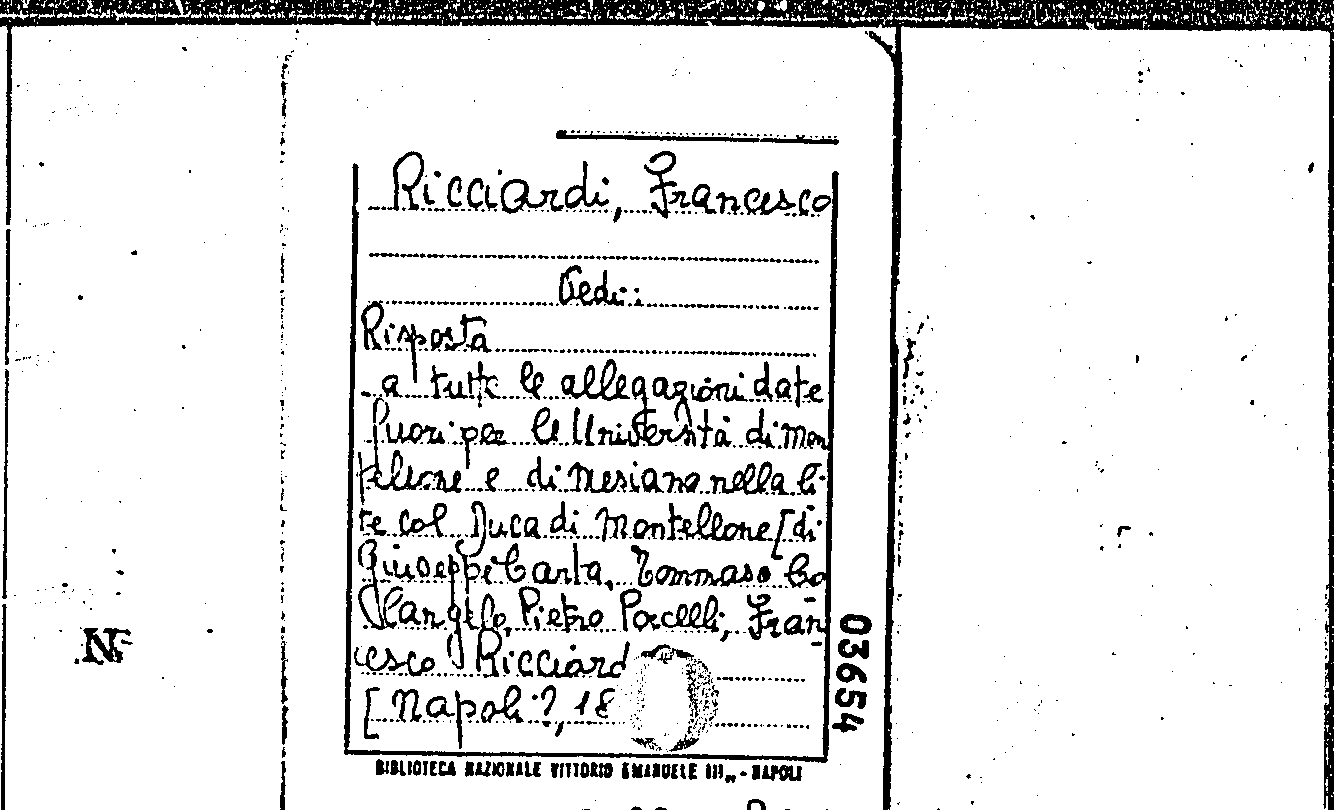 Ricciardi, Francesco
Vedi:
Risposta
a tutte le allegazioni date
fuori per le Università di Mon
teleone e di Mesiano nella li-
te col Duca di Montellone [di
Giuseppe Carta, Tommaso Ca
Pietro Porcelli, Fran
cesco Ricciard
[Napoli?, 18
03654
BIBLIOTECA NAZIONALE VITTORIO EMANUELE III„ - NAPOLI
N